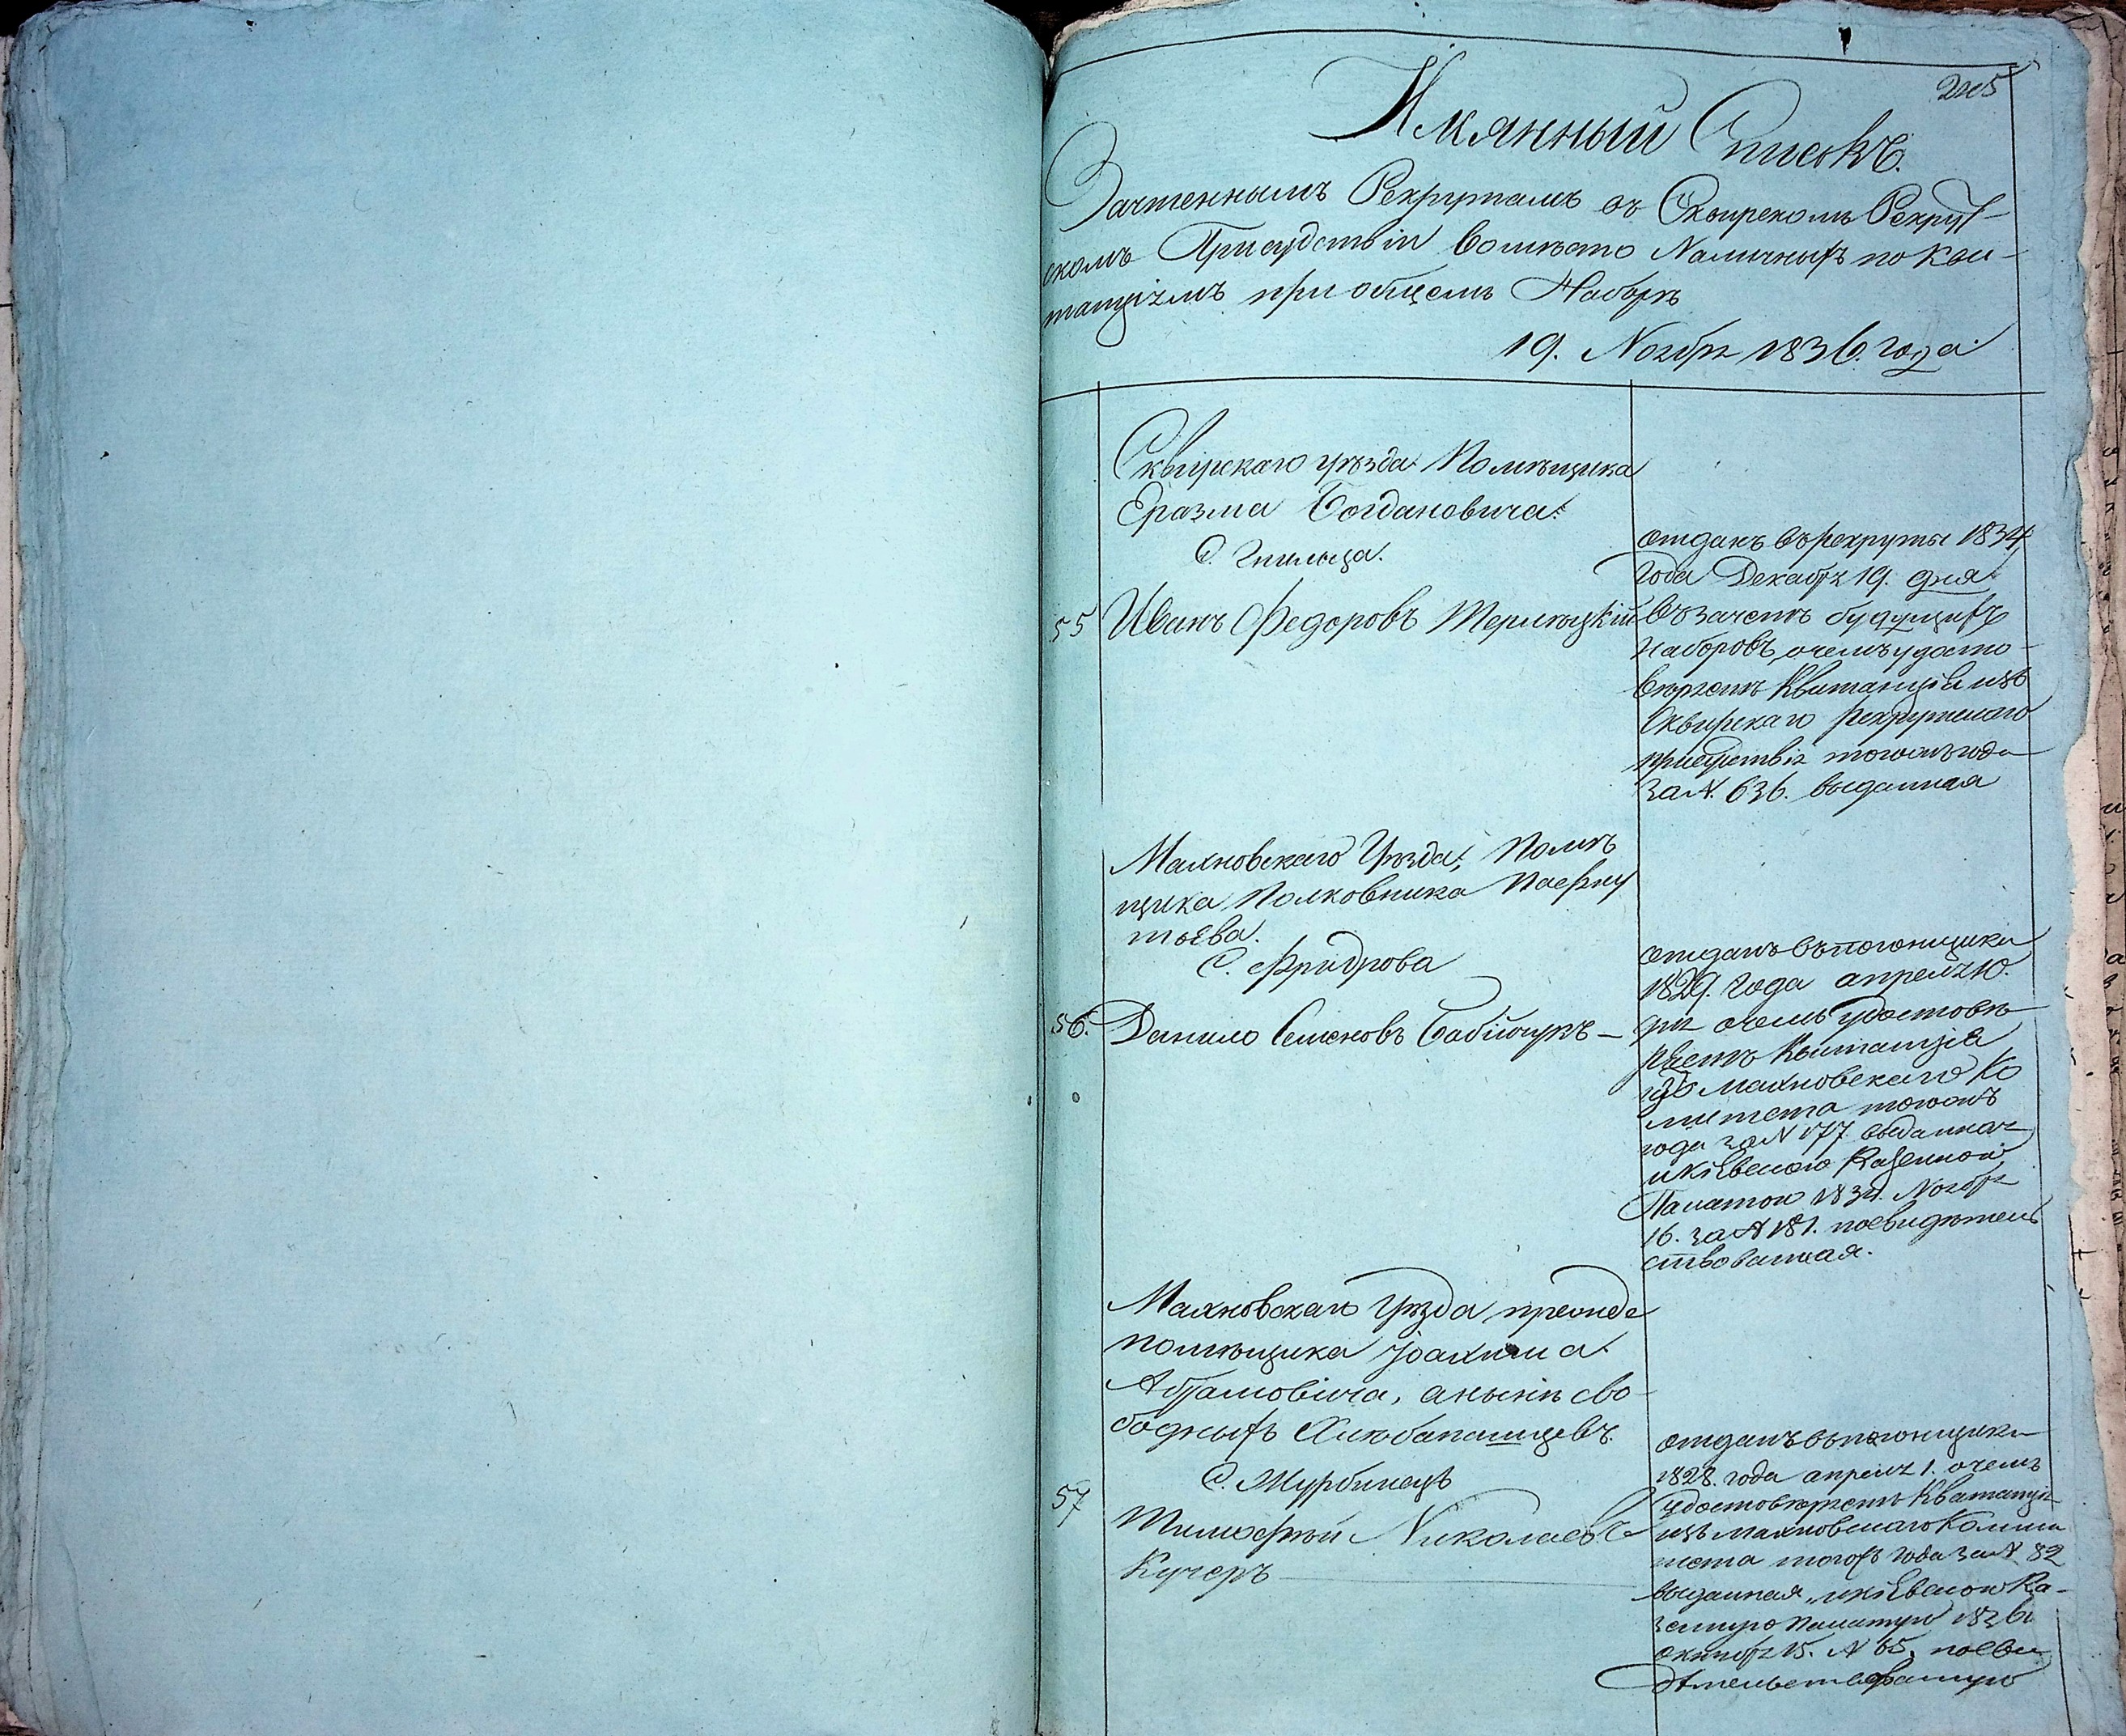 Имянный Списокъ.
Зачтеннымъ Рекрутамъ въ Сквирскомъ Рекрут-
скомъ Присудствіи вомѣсто Наличныхъ по Кви-
танціямъ при общемъ Наборѣ
19. Ноября 1836. года
Сквирскаго уѣзда Помѣщика
Еразма Богдановича.
С. Гнильца.
55 Иванъ Федоровъ Терлѣцкій
отданъ въ рехруты 1834
года Декабря 19. дня
въ зачетъ будущихъ
наборовъ, о чемъ удосто-
вѣряетъ Квитанція изъ
Сквирскаго рехрутскаго
присудствія тогожъ года
за N. 636. выданная
Махновскаго Уѣзда, Помѣ
щика Полковника Пафну
тьева.
С. Фридрова
56. Данило Семеновъ Бабійчукъ —
отданъ въ погонщики
1829. года апреля 10.
дня о чемъ удостовѣ
ряетъ Квитанція
изъ Махновскаго Ко
митета тогожъ
года за N 177 выданная
и Кіевскою Казенною
Палатою 1834. Ноября
16. за N 181. посвидѣтель
ствованная.
Махновскаго Уѣзда прежде
помѣщика Іоахима
Абрамовича, а нынѣ сво
бодныхъ Хлѣбопашцевъ.
С. Журбинецъ
57 Тимофѣй Николаевъ
Кучеръ
отданъ въ погонщики
1828. года апреля 1. о чемъ
удостовѣряетъ Квитанція
изъ Махновскаго Коми
тета тогожъ года за N 82
выданная, и Кіевскою Ка-
зенною Палатою 1836
октября 15. N 65. посви
дѣтельствованную